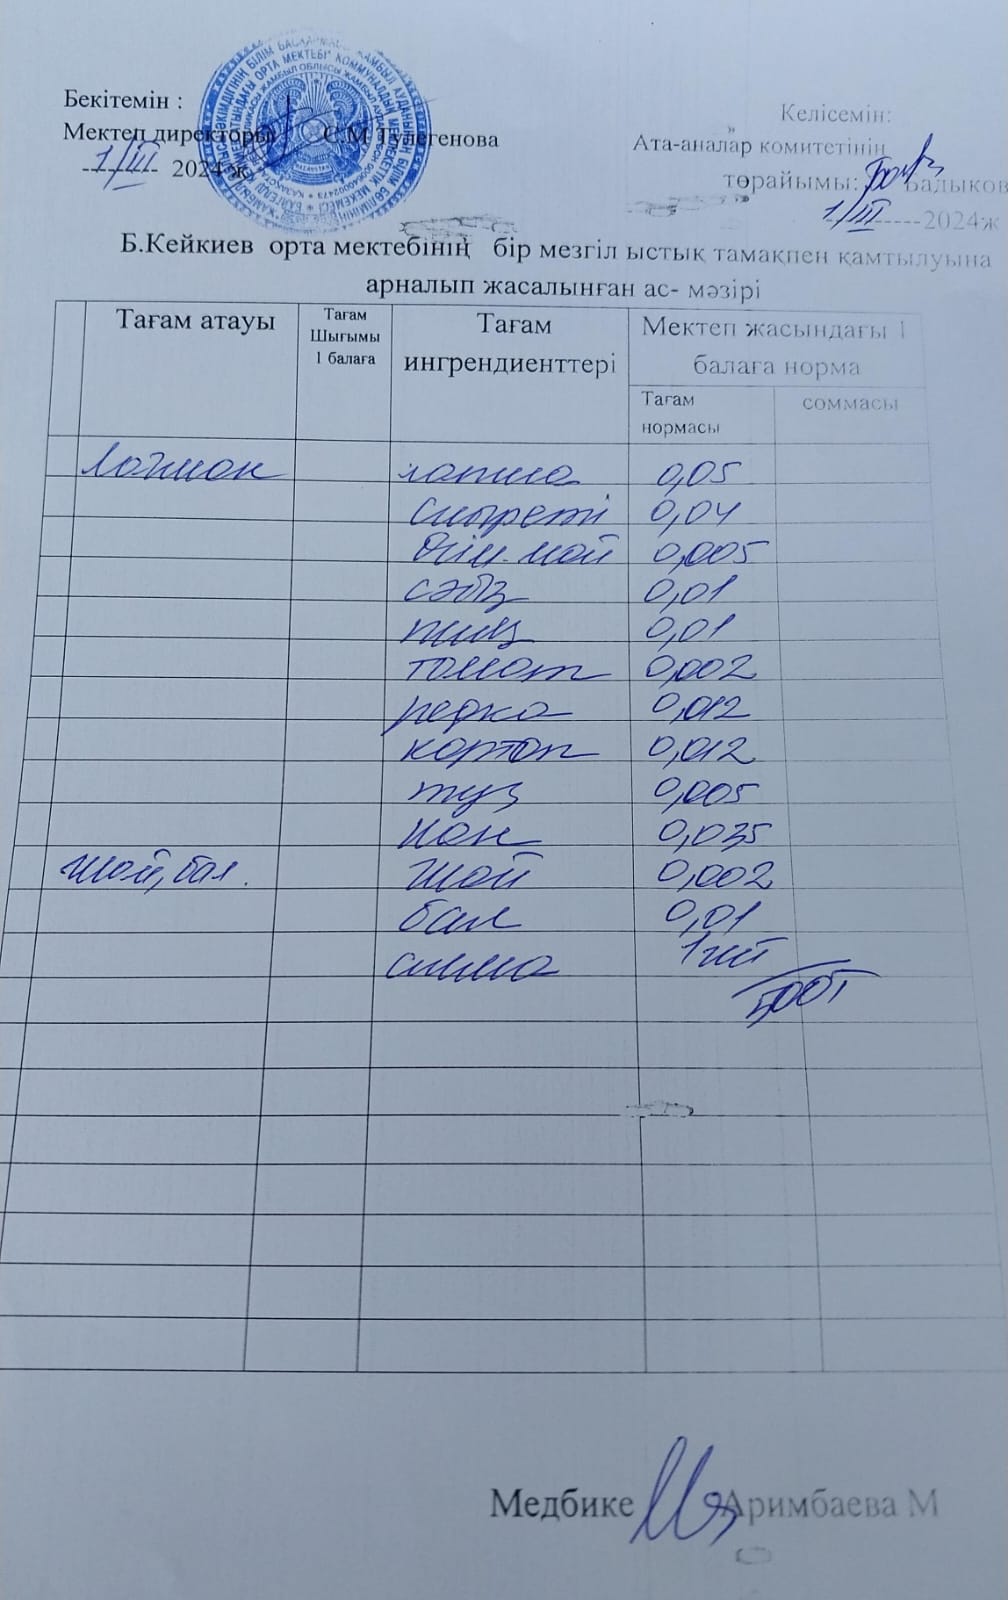 Бекітемін :
Мектеп директоры С.М.Тулегенова
1/III 2024ж
Келісемін:
Ата-аналар комитетінің
төрайымы: Бадыков
1/III -----2024ж
Б.Кейкиев орта мектебінің бір мезгіл ыстық тамақпен қамтылуына
арналып жасалынған ас- мәзірі
Тағам атауы
Тағам
Шығымы
1 балаға
Тағам
ингрендиенттері
Мектеп жасындағы 1
балаға норма
Тағам
нормасы
соммасы
Лагман лапша 0,05
сиыр еті 0,04
өсім. май 0,005
сәбіз 0,01
пияз 0,01
томат 0,002
редка 0,012
картоп 0,012
тұз 0,005
нан 0,035
Шай, бал. шай 0,002
бал 0,01
алма 1шт
Медбике Аримбаева М